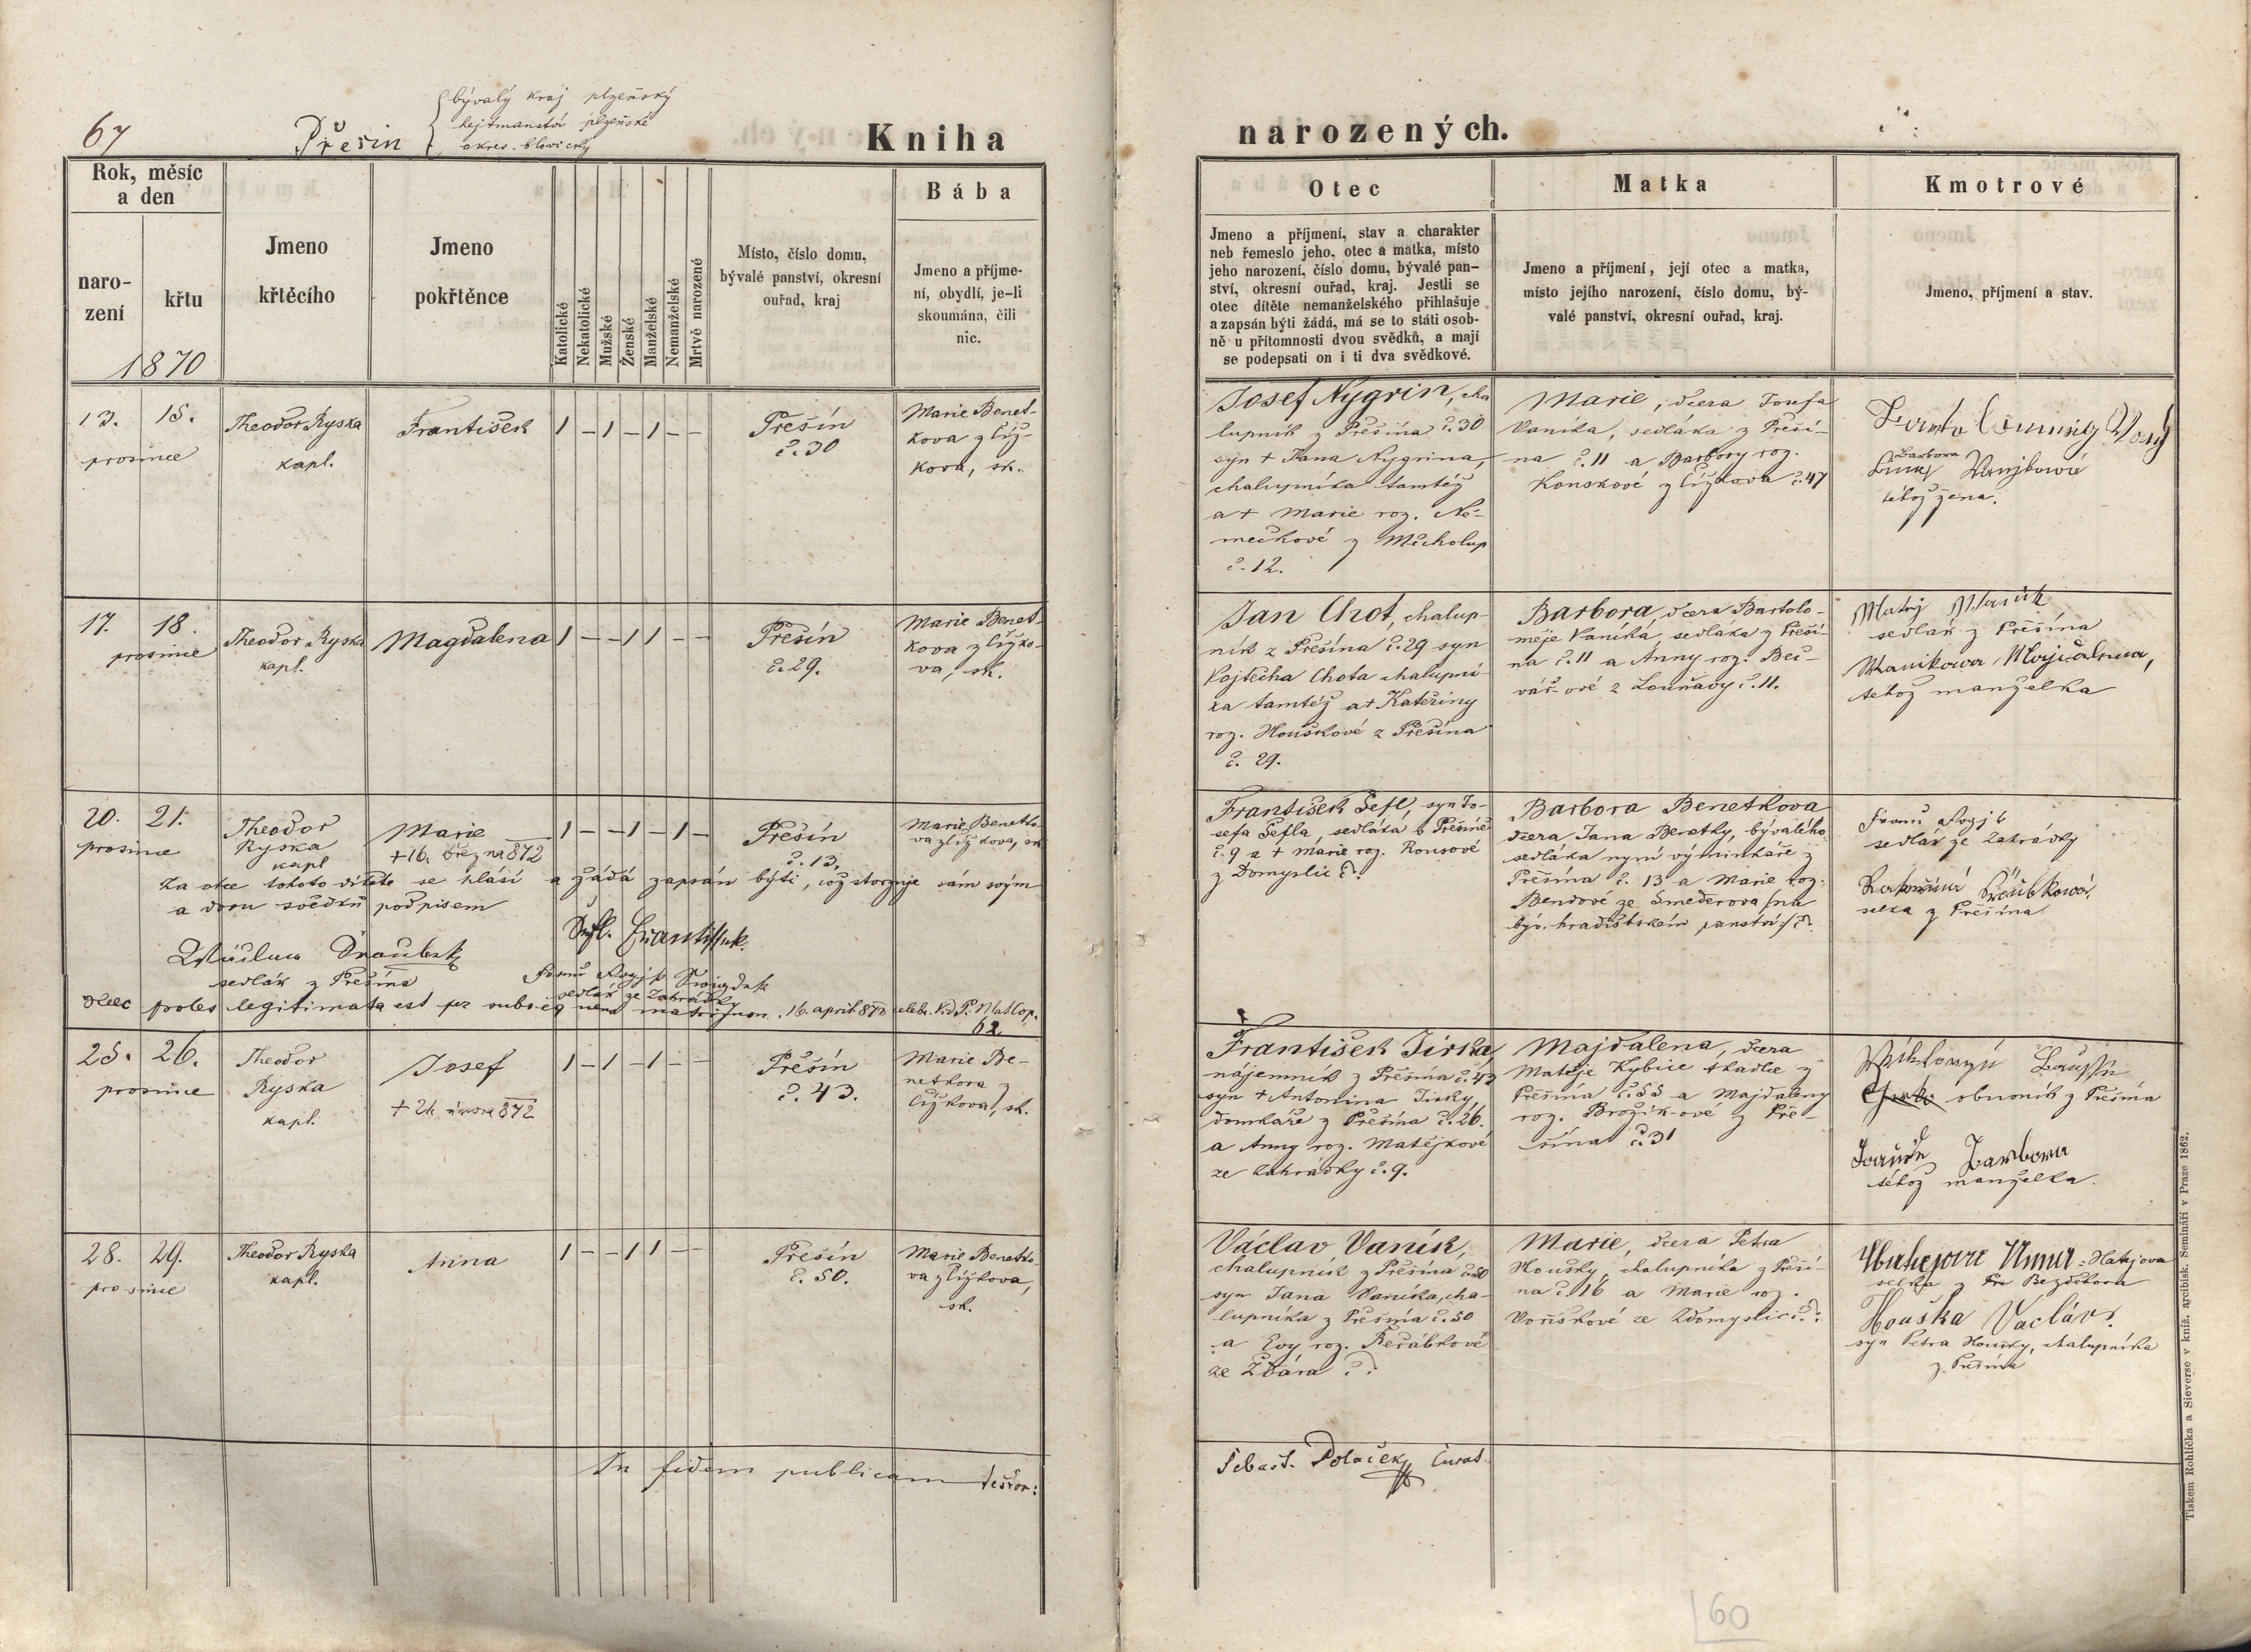 67
Přešin
bývalý kraj plzeňský
hejtmanství plzeňské
okres. blovický
Kniha
Rok, měsíc
a den
naro-
zení
křtu
1870
Jmeno
křtěcího
Jmeno
pokřtěnce
Katolické
Nekatolické
Mužské
Ženské
Manželské
Nemanželské
Mrtvě narozené
Místo, číslo domu,
bývalé panství, okresní
ouřad, kraj
Bába
Jmeno a příjme-
ní, obydlí, je-li
skoumána, čili
nic.
13. 15.
prosince
Theodor Ryska
kapl.
František
1 – 1 – 1 – –
Přešín
č. 30
Marie Benet-
kova z Číž-
kova, sk.
17. 18.
prosince
Theodor Ryska
kapl.
Magdalena
1 – – 1 1 – –
Přešín
č. 29.
Marie Benet-
kova z Čížko-
va, sk.
20. 21.
prosince
Theodor
Ryska
kapl
Marie
+ 16. března 872
1 – – 1 – 1 –
Přešín
č. 13,
Marie Benetko-
va z Čížkova, sk
Za otce tohoto dítěte se hlásí a žádá zapsán býti, což stvrzuje sám svým
a dvou svědků podpisem
Šefl. Frantissek.
sedlák z Přešína
sedlák ze Zahrádky
proles legitimata est per subseq uens matrimon. 16. april 872 celebr. Vid. P. Mat Cop.
62.
25. 26.
prosince
Theodor
Ryska
kapl.
Josef
+ 21. února 872
1 – 1 – 1 – –
Přešín
č. 43.
Marie Be-
netkova z
Čížkova, sk.
28. 29.
prosince
Theodor Ryska
kapl.
Anna
1 – – 1 1 – –
Přešín
č. 50.
Marie Benetko-
va z Čížkova,
sk.
In fidem publicam testor:
narozených.
Otec
Jmeno a příjmení, stav a charakter
neb řemeslo jeho, otec a matka, místo
jeho narození, číslo domu, bývalé pan-
ství, okresní ouřad, kraj. Jestli se
otec dítěte nemanželského přihlašuje
a zapsán býti žádá, má se to státi osob-
ně u přítomnosti dvou svědků, a mají
se podepsati on i ti dva svědkové.
Matka
Jmeno a příjmení, její otec a matka,
místo jejího narození, číslo domu, bý-
valé panství, okresní ouřad, kraj.
Kmotrové
Jmeno, příjmení a stav.
Josef Nygrin, cha
lupník z Přešína č. 30
syn + Jana Nygrina,
chalupníka tamtéž
a + Marie roz. Ně-
mečkové z Měcholup
č. 12.
Marie, dcera Josefa
Vaníka, sedláka z Přeší-
na č. 11 a Barbory roz.
Kouskové z Čížkova č. 47
Barbora
téhož žena.
Jan Chot, chalup-
ník z Přešína č. 29 syn
Vojtěcha Chota chalupní-
ka tamtéž a + Kateřiny
roz. Houškové z Přešína
č. 29.
Barbora, dcera Bartolo-
měje Vaníka, sedláka z Přeší-
na č. 11 a Anny roz. Beč-
vář-ové z Louňavy č. 11.
Matěj Wanik
sedlák z Přešína
Wanikowa Majdalena,
téhož manželka
František Šefl, syn Jo-
sefa Šefla, sedláka v Přešíně
č. 9 a + Marie roz. Rousové
z Domyslic č.?
Barbora Benetkova
dcera Jana Benetky, bývalého
sedláka nyní výminkáře z
Přešína č. 13 a Marie roz.
Bendové ze Směderova /na
býv. hradišťském panství/ č.?
sedlák ze Zahrádky
selka z Přešína
František Jirka,
nájemník z Přešína č. 43
syn + Antonína Jirky,
domkáře z Přešína č. 26.
a Anny roz. Matějkové
ze Zahrádky č. 9.
Majdalena, dcera
Matěje Kybice tkadlce z
Přešína č. 55 a Majdaleny
roz. Brožík-ové z Pře-
šína č. 31
obuvník z Přešína
Barbora
téhož manželka.
Václav Vaník,
chalupník z Přešína č. 50
syn Jana Vaníka, cha-
lupníka z Přešína č. 50
a Evy roz. Řeřábkové
ze Ždára č.?
Marie, dcera Petra
Houšky, chalupníka z Přeší-
na č. 16 a Marie roz.
Voříškové ze Zdomyslic č.?
Anna = Hatajova
selka z Bezděkova
Houška Vaclav.
syn Petra Houšky, chalupníka
z Přešína
Sebast. Polaček, Curat
Tiskem Rohlíčka a Sieverse v kníž. arcibisk. Semináři v Praze 1862.
60